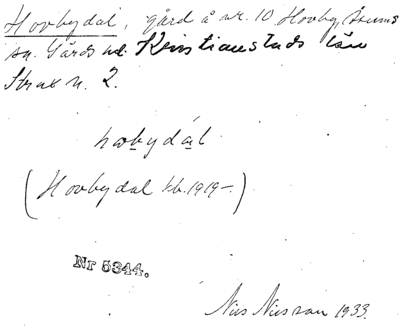 Hovbydal, gård å nr. 10 Hovby, Trums
sn. Gärds hd. Kristianstads län
Strax n. 2.
hovbydal
(Hovbydal kb. 1919-)
Nr 5344.
Nils Nilsson 1933.